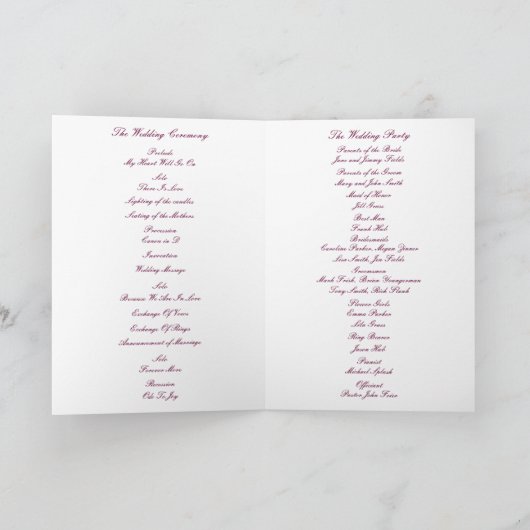 The Wedding Ceremony
Prelude
My Heart Will Go On
Solo
There Is Love
Lighting of the candles
Seating of the Mothers
Procession
Canon in D
Invocation
Wedding Message
Solo
Because We Are In Love
Exchange Of Vows
Exchange Of Rings
Announcement of Marriage
Solo
Forever More
Recession
Ode To Joy
The Wedding Party
Parents of the Bride
Jane and Jimmy Fields
Parents of the Groom
Mary and John Smith
Maid of Honor
Jill Grass
Best Man
Frank Hub
Bridesmaids
Caroline Parker, Megan Zinner
Lisa Smith, Jen Fields
Groomsmen
Mark Fresh, Brian Youngerman
Tony Smith, Rick Plank
Flower Girls
Emma Parker
Lila Grass
Ring Bearer
Jason Hub
Pianist
Michael Splash
Officiant
Pastor John Frier